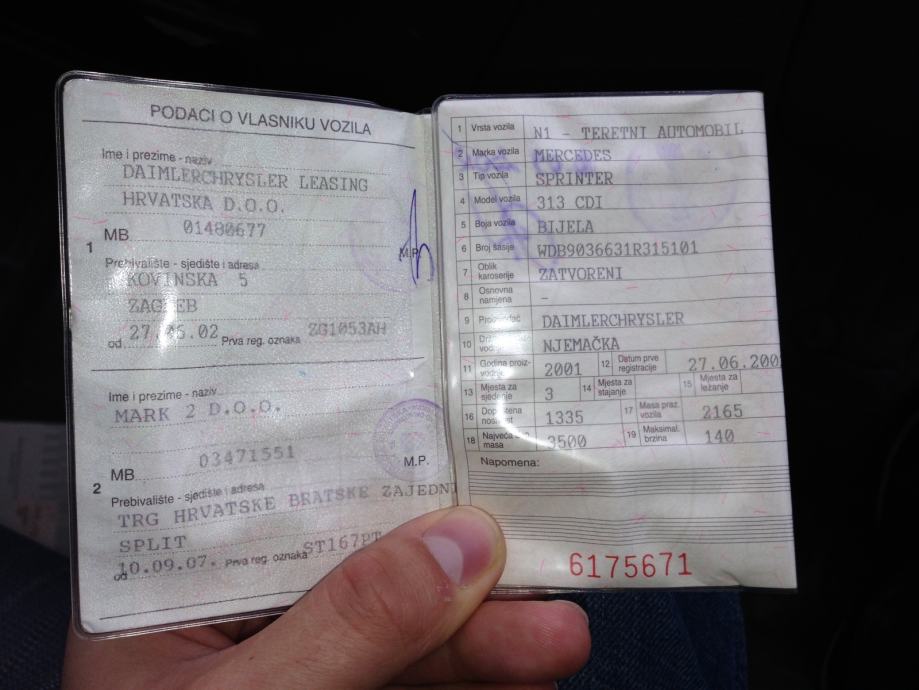 PODACI O VLASNIKU VOZILA
Ime i prezime - naziv
DAIMLERCHRYSLER LEASING
HRVATSKA D.O.O.
1 MB 01480677
M.P.
Prebivalište - sjedište i adresa
KOVINSKA 5
ZAGREB
od 27.06.02. Prva reg. oznaka ZG1053AH
Ime i prezime - naziv
MARK 2 D.O.O.
MB 03471551
M.P.
2
Prebivalište - sjedište i adresa
TRG HRVATSKE BRATSKE ZAJEDN
SPLIT
od 10.09.07. Prva reg. oznaka ST167PT
1 Vrsta vozila N1 - TERETNI AUTOMOBIL
2 Marka vozila MERCEDES
3 Tip vozila SPRINTER
4 Model vozila 313 CDI
5 Boja vozila BIJELA
6 Broj šasije WDB9036631R315101
7 Oblik karoserije ZATVORENI
8 Osnovna namjena -
9 DAIMLERCHRYSLER
10 NJEMAČKA
11 Godina proiz- 2001 12 Datum prve registracije 27.06.200
13 Mjesta za sjedenje 3 14 Mjesta za stajanje 15 Mjesta za ležanje
16 1335 17 Masa praz. vozila 2165
18 Najveća masa 3500 19 Maksimal. brzina 140
Napomena:
6175671